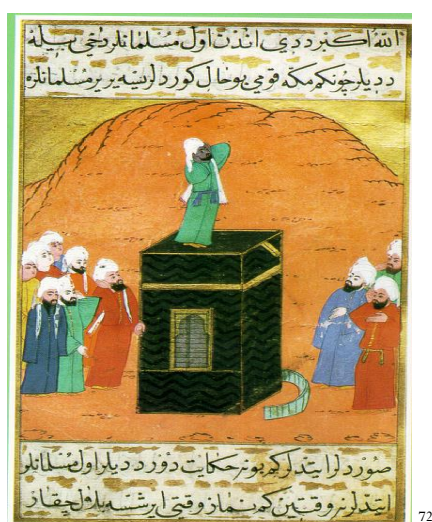 الله اكبر ددي اندن اول مسلمانلر دخي بيله
ددیلر چونكم مكه قومي بو حال كوردلر مسلمانلره
صوردلر ایتدلر كم بو نه حكایت دورر ددیلر اول مسلمانلر
ایتدلر نه وقتین كم نماز وقتي ایرشسه بلال چقار
72